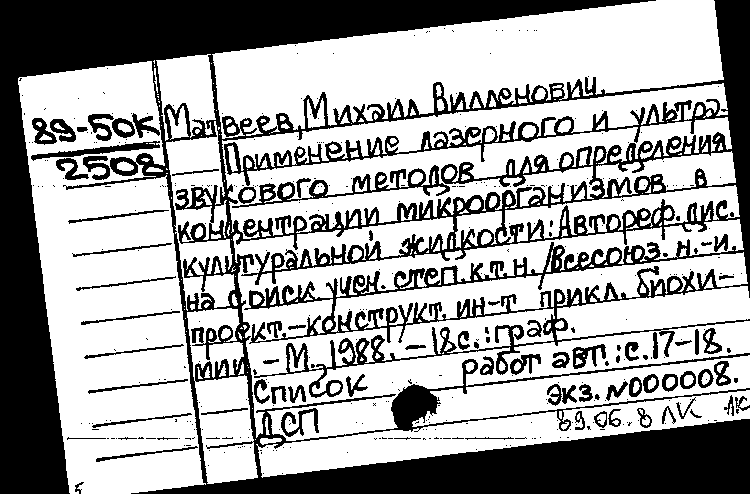 89-50К
2508
Матвеев, Михаил Вилленович.
Применение лазерного и ультра-
звукового методов для определения
концентрации микроорганизмов в
культуральной жидкости: Автореф. дис.
на соиск. учен. степ. к.т.н. /Всесоюз. н.-и.
проект.-конструкт. ин-т прикл. биохи-
мии. - М., 1988. - 18с.: граф.
Список работ авт.: с. 17-18.
ДСП Экз. N000008.
89.06.8 ЛК ЛК